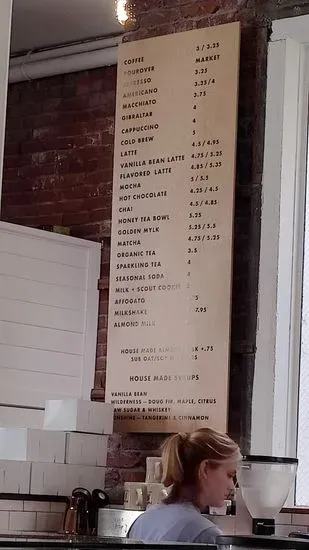 COFFEE 3 / 3.25
POUROVER MARKET
ESPRESSO 3.25
AMERICANO 3.25/4
MACCHIATO 3.75
GIBRALTAR 4
CAPPUCCINO 4
COLD BREW 5
LATTE 4.5 / 4.95
VANILLA BEAN LATTE 4.75 / 5.25
FLAVORED LATTE 4.85 / 5.35
MOCHA 5 / 5.5
HOT CHOCOLATE 4.25 / 4.5
CHAI 4.5 / 4.85
HONEY TEA BOWL 5.25
GOLDEN MYLK 5.25 / 5.5
MATCHA 4.75 / 5.25
ORGANIC TEA 3.5
SPARKLING TEA 4
SEASONAL SODA 4
MILK + SCOUT COOKIE
AFFOGATO
MILKSHAKE 7.95
ALMOND MILK
HOUSE MADE ALMOND +.75
SUB OAT/SOY
HOUSE MADE SYRUPS
VANILLA BEAN
WILDERNESS — DOUG FIR, MAPLE, CITRUS
RAW SUGAR & WHISKEY
SUNSHINE — TANGERINE & CINNAMON